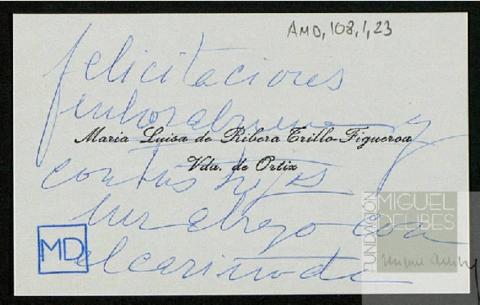 AMD, 108, 1, 23
felicitaciones
enhorabuena y
Maria Luisa de Ribera Trillo-Figueroa
Vda. de Ortiz
con tus hijos
un abrazo con
el cariño de
MD
FUNDACIÓN
MIGUEL
DELIBES